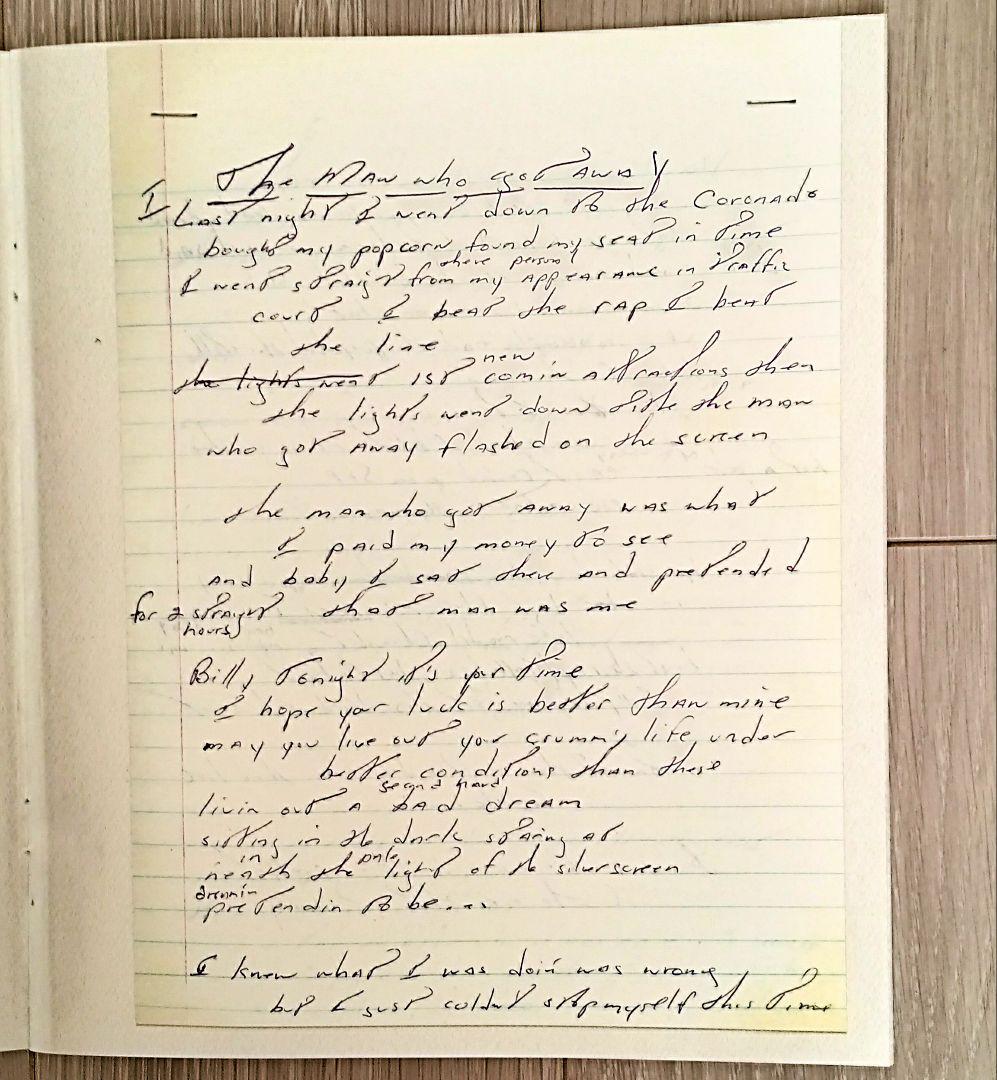 The Man who got AWAY
I Last night I went down to the Coronado
bought my popcorn found my seat in time
there person
I went straigt from my appearance in traffic
court I beat the rap I beat
the line
new
the lights went 1st comin attractions then
the lights went down title the man
who got away flashed on the screen
the man who got away was what
I paid my money to see
and baby I sat there and pretended
for 2 straight that man was me
hours
Billy tonight it's your time
I hope your luck is better than mine
may you live out your crummy life under
better conditions than these
second hand
livin out a bad dream
sitting in the dark staring at
in pale
neath the light of the silverscreen
dreamin
pretendin to be...
I knew what I was doin was wrong
but I just coldn't stop myself this time